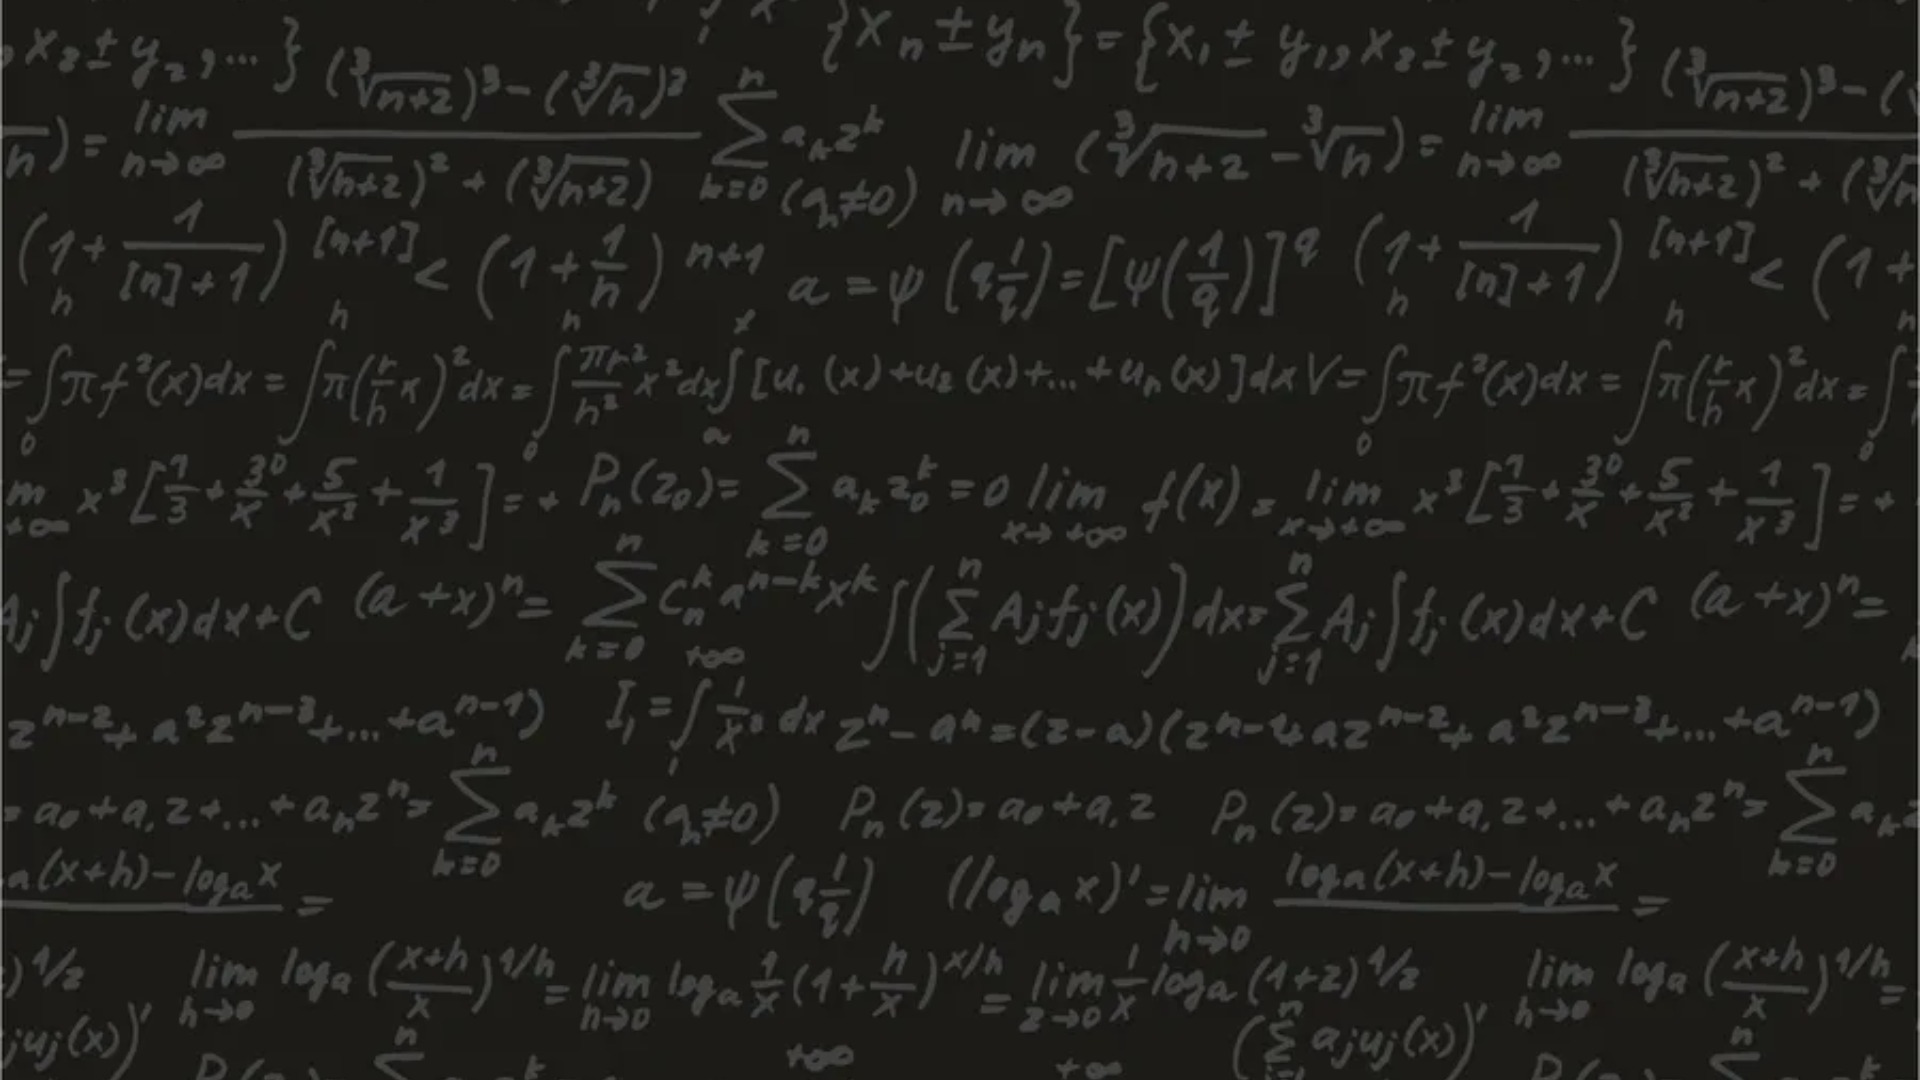 {xₙ ± yₙ} = {x₁ ± y₁, x₂ ± y₂, ...}
, x₂ ± y₂, ...} (∛(n+2))³ − (∛n)³ (∛(n+2))³ − (
n) = lim n→∞ (∛(n+2))² + (∛(n+2)) ∑ k=0 n aₖzᵏ (qₙ≠0) lim n→∞ (∛(n+2) − ∛n) = lim n→∞ (∛(n+2))² + (∛n
(1 + 1/([n]+1))^[n+1] < (1 + 1/n)^n+1 a = ψ(q 1/q) = [ψ(1/q)]^q (1 + 1/([n]+1))^[n+1] < (1 +
= ∫₀ʰ πf²(x)dx = ∫ʰ π(r/h x)²dx = ∫₀ʰ πr²/h² x²dx ∫ₐˣ [u₁(x)+u₂(x)+...+uₙ(x)]dx V = ∫₀ʰ πf²(x)dx = ∫ʰ π(r/h x)²dx = ∫₀
m +∞ x³[1/3 + 3⁰/x + 5/x² + 1/x³] = + Pₙ(z₀) = ∑ k=0 n aₖz₀ᵏ = 0 lim x→+∞ f(x) = lim x→+∞ x³[1/3 + 3⁰/x + 5/x² + 1/x³] = +
Aⱼ∫fⱼ(x)dx+C (a+x)ⁿ = ∑ k=0 n Cₙᵏ aⁿ⁻ᵏxᵏ ∫(∑ j=1 n Aⱼfⱼ(x))dx = ∑ j=1 n Aⱼ∫fⱼ(x)dx+C (a+x)ⁿ =
zⁿ⁻² + a²zⁿ⁻³ + ... + aⁿ⁻¹) I₁ = ∫₁^+∞ 1/x dx zⁿ − aⁿ = (z−a)(zⁿ⁻¹ + azⁿ⁻² + a²zⁿ⁻³ + ... + aⁿ⁻¹)
= a₀ + a₁z + ... + aₙzⁿ = ∑ k=0 n aₖzᵏ (qₙ≠0) Pₙ(z) = a₀ + a₁z Pₙ(z) = a₀ + a₁z + ... + aₙzⁿ = ∑ k=0 n aₖz
a(x+h) − logₐx = a = ψ(q 1/q) (logₐx)' = lim h→0 logₐ(x+h) − logₐx =
)^1/z lim h→0 logₐ((x+h)/x)^1/h = lim h→0 logₐ 1/x (1 + h/x)^x/h = lim z→0 1/x logₐ(1+z)^1/z lim h→0 logₐ((x+h)/x)^1/h =
ⱼuⱼ(x))' (∑ n aⱼuⱼ(x))'
n +∞ +∞ n